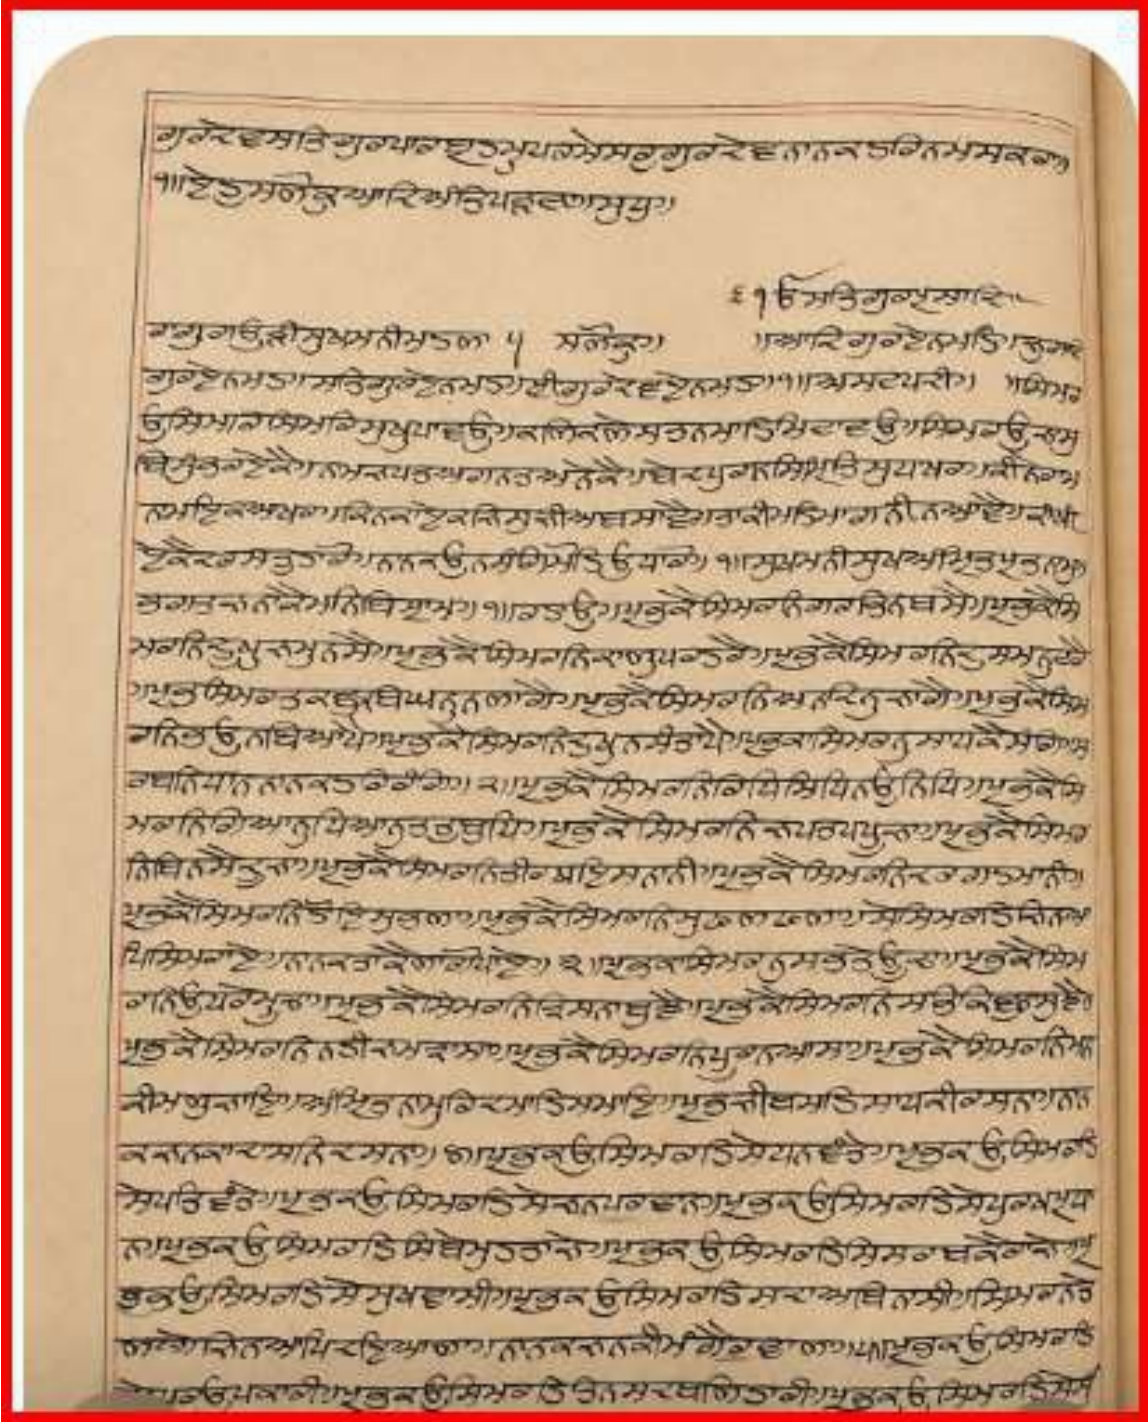 ਗੁਰਦੇਵਸਤਿਗੁਰਪਾਰਬ੍ਰਹਮੁਪਰਮੇਸਰੁਗੁਰਦੇਵਨਾਨਕਹਰਿਨਮਸਕਰਾ॥
੧॥ਏਹੁਸਲੋਕੁਆਦਿਅੰਤਿਪੜਣਾ॥ਸੁਧੁ॥
ੴਸਤਿਗੁਰਪ੍ਰਸਾਦਿ॥
ਰਾਗੁਗਉੜੀਸੁਖਮਨੀਮਹਲਾ ੫ ਸਲੋਕੁ॥ ॥ਆਦਿਗੁਰਏਨਮਹ॥ਜੁਗਾਦਿ
ਗੁਰਏਨਮਹ॥ਸਤਿਗੁਰਏਨਮਹ॥ਸ੍ਰੀਗੁਰਦੇਵਏਨਮਹ॥੧॥ਅਸਟਪਦੀ॥ ॥ਸਿਮਰ
ਉਸਿਮਰਿਸਿਮਰਿਸੁਖੁਪਾਵਉ॥ਕਲਿਕਲੇਸਤਨਮਾਹਿਮਿਟਾਵਉ॥ਸਿਮਰਉਜਾਸੁ
ਬਿਸੁੰਭਰਏਕੈ॥ਨਾਮੁਜਪਤਅਗਨਤਅਨੇਕੈ॥ਬੇਦਪੁਰਾਨਸਿਮ੍ਰਿਤਿਸੁਧਾਖਰ॥ਕੀਨੇਰਾਮ
ਨਾਮਇਕਆਖਰ॥ਕਿਨਕਾਏਕਜਿਸੁਜੀਅਬਸਾਵੈ॥ਤਾਕੀਮਹਿਮਾਗਨੀਨਆਵੈ॥ਕਾਂਖੀ
ਏਕੈਦਰਸਤੁਹਾਰੋ॥ਨਾਨਕਉਨਸੰਗਿਮੋਹਿਉਧਾਰੋ॥੧॥ਸੁਖਮਨੀਸੁਖਅੰਮ੍ਰਿਤਪ੍ਰਭਨਾਮੁ॥
ਭਗਤਜਨਾਕੈਮਨਿਬਿਸ੍ਰਾਮ॥੧॥ਰਹਾਉ॥ਪ੍ਰਭਕੈਸਿਮਰਨਿਗਰਭਿਨਬਸੈ॥ਪ੍ਰਭਕੈਸਿ
ਮਰਨਿਦੂਖੁਜਮੁਨਸੈ॥ਪ੍ਰਭਕੈਸਿਮਰਨਿਕਾਲੁਪਰਹਰੈ॥ਪ੍ਰਭਕੈਸਿਮਰਨਿਦੁਸਮਨੁਟਰੈ
॥ਪ੍ਰਭਸਿਮਰਤਕਛੁਬਿਘਨੁਨਲਾਗੈ॥ਪ੍ਰਭਕੈਸਿਮਰਨਿਅਨਦਿਨੁਜਾਗੈ॥ਪ੍ਰਭਕੈਸਿਮ
ਰਨਿਭਉਨਬਿਆਪੈ॥ਪ੍ਰਭਕੈਸਿਮਰਨਿਦੁਖੁਨਸੰਤਾਪੈ॥ਪ੍ਰਭਕਾਸਿਮਰਨੁਸਾਧਕੈਸੰਗਿ॥ਸ
ਰਬਨਿਧਾਨਨਾਨਕਹਰਿਰੰਗਿ॥੨॥ਪ੍ਰਭਕੈਸਿਮਰਨਿਰਿਧਿਸਿਧਿਨਉਨਿਧਿ॥ਪ੍ਰਭਕੈਸਿ
ਮਰਨਿਗਿਆਨੁਧਿਆਨੁਤਤੁਬੁਧਿ॥ਪ੍ਰਭਕੈਸਿਮਰਨਿਜਪਤਪਪੂਜਾ॥ਪ੍ਰਭਕੈਸਿਮਰ
ਨਿਬਿਨਸੈਦੂਜਾ॥ਪ੍ਰਭਕੈਸਿਮਰਨਿਤੀਰਥਇਸਨਾਨੀ॥ਪ੍ਰਭਕੈਸਿਮਰਨਿਦਰਗਹਮਾਨੀ॥
ਪ੍ਰਭਕੈਸਿਮਰਨਿਹੋਇਸੁਭਲਾ॥ਪ੍ਰਭਕੈਸਿਮਰਨਿਸੁਫਲਫਲਾ॥ਸੇਸਿਮਰਹਿਜਿਨਆ
ਪਿਸਿਮਰਾਏ॥ਨਾਨਕਤਾਕੈਲਾਗੋਪਾਏ॥੩॥ਪ੍ਰਭਕਾਸਿਮਰਨੁਸਭਤੇਊਚਾ॥ਪ੍ਰਭਕੈਸਿਮ
ਰਨਿਉਧਰੇਮੂਚਾ॥ਪ੍ਰਭਕੈਸਿਮਰਨਿਤ੍ਰਿਸਨਾਬੁਝੈ॥ਪ੍ਰਭਕੈਸਿਮਰਨਿਸਭੁਕਿਛੁਸੁਝੈ॥
ਪ੍ਰਭਕੈਸਿਮਰਨਿਨਾਹੀਜਮਤ੍ਰਾਸਾ॥ਪ੍ਰਭਕੈਸਿਮਰਨਿਪੂਰਨਆਸਾ॥ਪ੍ਰਭਕੈਸਿਮਰਨਿਮਨ
ਕੀਮਲੁਜਾਇ॥ਅੰਮ੍ਰਿਤਨਾਮੁਰਿਦਮਾਹਿਸਮਾਇ॥ਪ੍ਰਭਜੀਬਸਹਿਸਾਧਕੀਰਸਨਾ॥ਨਾਨ
ਕਜਨਕਾਦਾਸਨਿਦਸਨਾ॥੪॥ਪ੍ਰਭਕਉਸਿਮਰਹਿਸੇਧਨਵੰਤੇ॥ਪ੍ਰਭਕਉਸਿਮਰਹਿ
ਸੇਪਤਿਵੰਤੇ॥ਪ੍ਰਭਕਉਸਿਮਰਹਿਸੇਜਨਪਰਵਾਨ॥ਪ੍ਰਭਕਉਸਿਮਰਹਿਸੇਪੁਰਖਪ੍ਰਧਾ
ਨ॥ਪ੍ਰਭਕਉਸਿਮਰਹਿਸਿਬੇਮੁਹਤਾਜੇ॥ਪ੍ਰਭਕਉਸਿਮਰਹਿਸਿਸਰਬਕੇਰਾਜੇ॥ਪ੍ਰ
ਭਕਉਸਿਮਰਹਿਸੇਸੁਖਵਾਸੀ॥ਪ੍ਰਭਕਉਸਿਮਰਹਿਸਦਾਅਬਿਨਾਸੀ॥ਸਿਮਰਨਤੇ
ਲਾਗੇਜਿਨਆਪਿਦਇਆਲਾ॥ਨਾਨਕਜਨਕੀਮੰਗੈਰਵਾਲਾ॥੫॥ਪ੍ਰਭਕਉਸਿਮਰਹਿ
ਸੇਪਰਉਪਕਾਰੀ॥ਪ੍ਰਭਕਉਸਿਮਰਹਿਤਿਨਸਦਬਲਿਹਾਰੀ॥ਪ੍ਰਭਕਉਸਿਮਰਹਿਸੇਮੁ